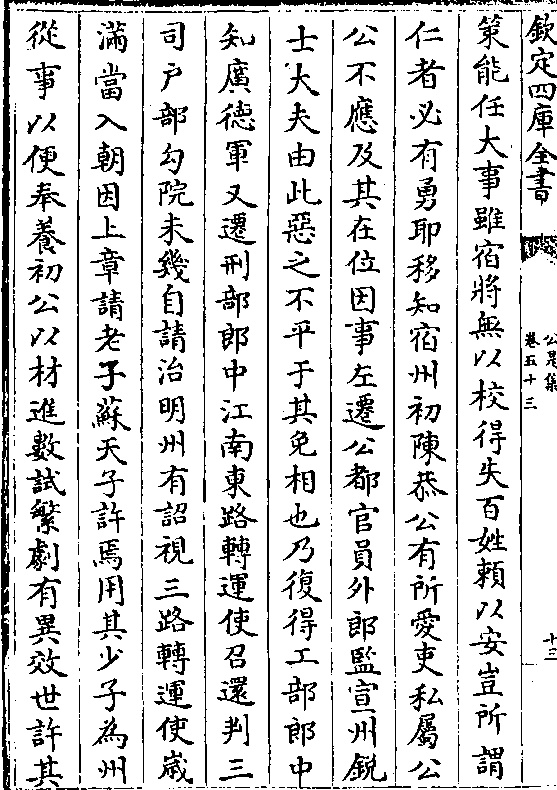 欽定四庫全書
公是集
卷五十三
十三
策能任大事雖宿將無以校得失百姓賴以安豈所謂
仁者必有勇耶移知宿州初陳恭公有所愛吏私屬公
公不應及其在位因事左遷公都官員外郎監宣州鋭
士大夫由此惡之不平于其免相也乃復得工部郎中
知廣德軍又遷刑部郎中江南東路轉運使召還判三
司户部勾院未幾自請治明州有詔視三路轉運使嵗
滿當入朝因上章請老于蘇天子許焉用其少子為州
從事以便奉養初公以材進數試繁劇有異效世許其